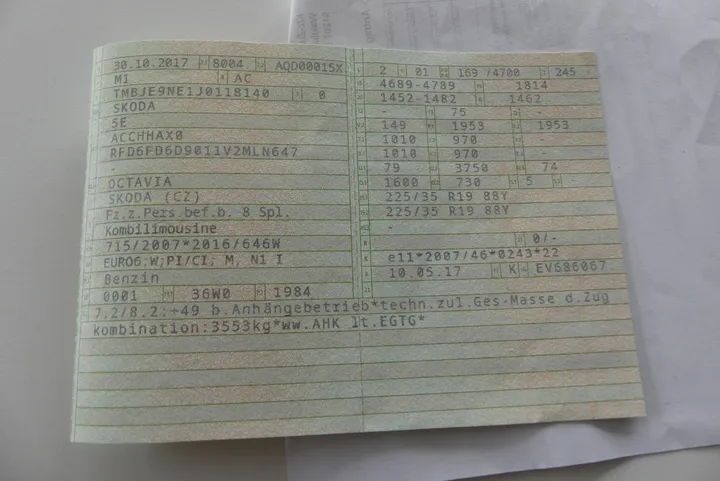 30.10.2017 8004 AQD00015X
M1 AC
TMBJE9NE1J0118140 0
SKODA
5E
ACCHHAX0
RFD6FD6D9011V2MLN647
-
OCTAVIA
SKODA (CZ)
Fz.z.Pers.bef.b. 8 Spl.
Kombilimousine
715/2007*2016/646W
EURO6;W;PI/CI; M, N1 I
Benzin
0001 36W0 1984
2 01 169 /4700 245
4689-4789 1814
1452-1482 1462
- 75 -
149 1953 1953
1010 970 -
1010 970 -
79 3750 74
1600 730 5 -
225/35 R19 88Y
225/35 R19 88Y
- -
0/-
e11*2007/46*0243*22
10.05.17 K EV686067
7.2/8.2:+49 b.Anhängebetrieb*techn.zul.Ges-Masse d.Zug
kombination:3553kg*ww.AHK lt.EGTG*